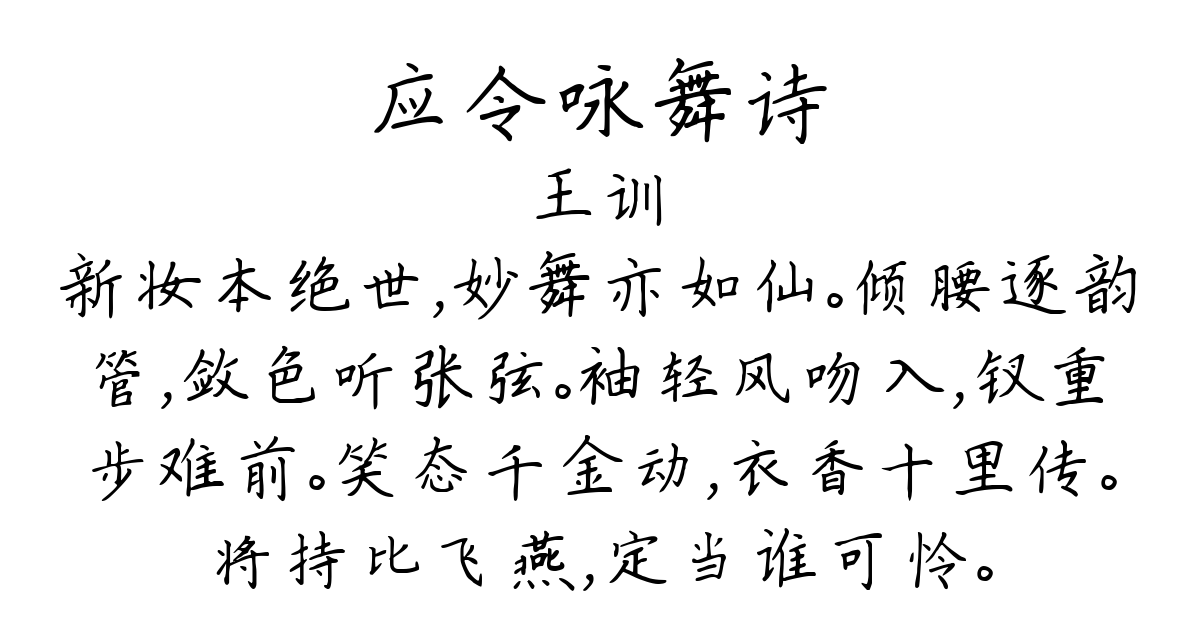 应令咏舞诗
王训
新妆本绝世,妙舞亦如仙。倾腰逐韵
管,敛色听张弦。袖轻风吻入,钗重
步难前。笑态千金动,衣香十里传。
将持比飞燕,定当谁可怜。